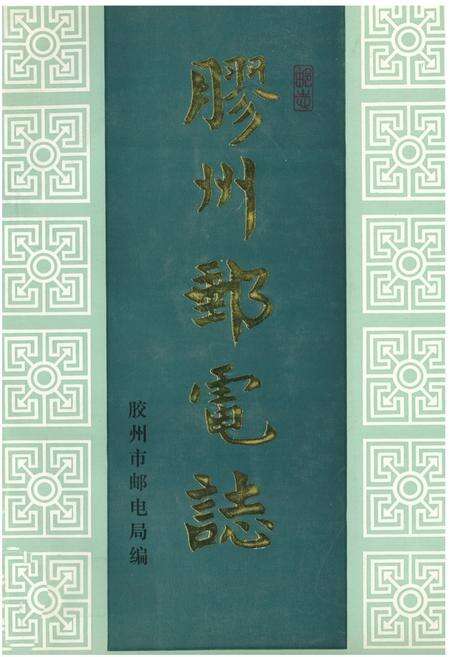 膠州郵電誌
胶州市邮电局编